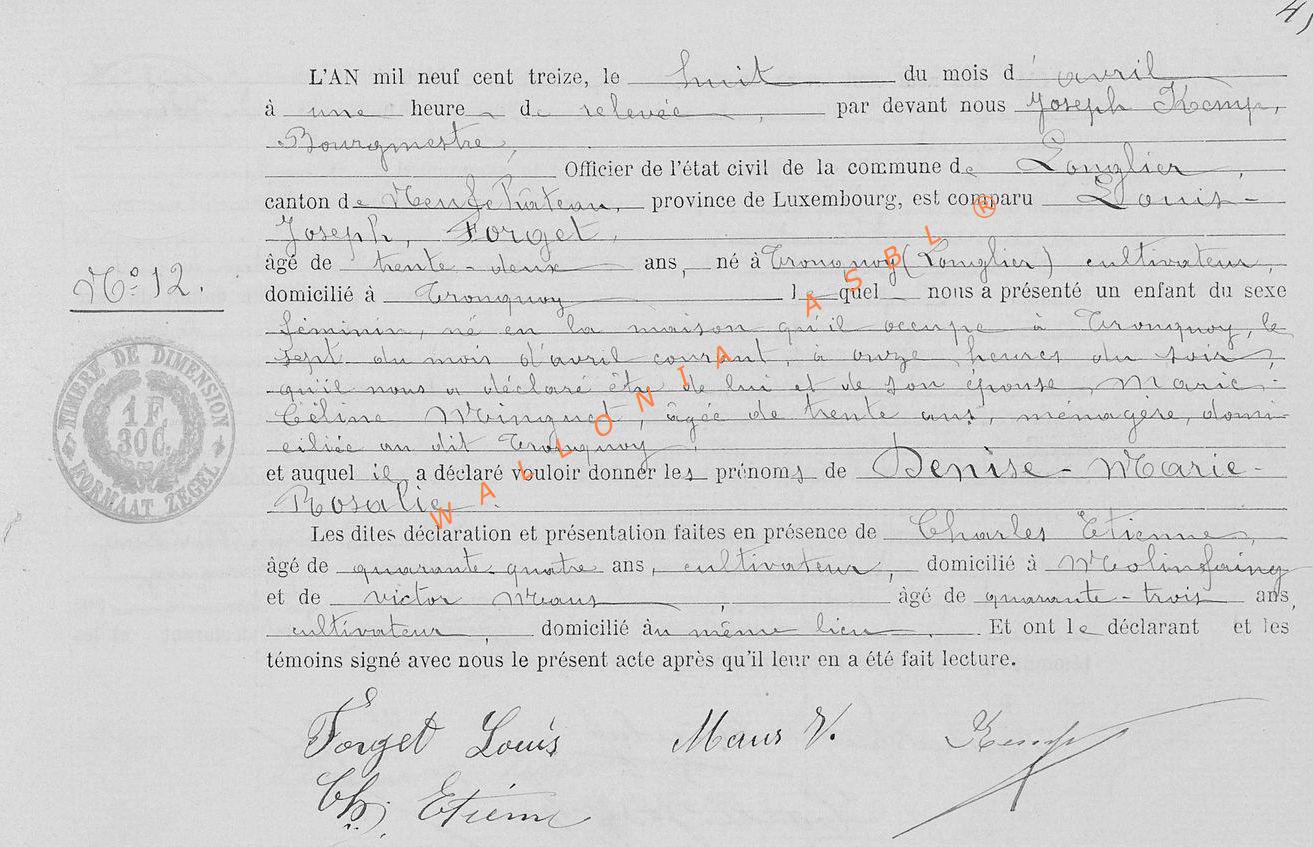 4
L'AN mil neuf cent treize, le huit du mois d'avril
à une heure de relevée, par devant nous Joseph Kemp,
Bourgmestre,
Officier de l'état civil de la commune de Longlier,
canton de Neufchâteau, province de Luxembourg, est comparu Louis-
Joseph, Forget,
âgé de trente-deux ans, né à Tronquoy (Longlier) cultivateur,
N° 12.
domicilié à Tronquoy lequel nous a présenté un enfant du sexe
féminin, né en la maison qu'il occupe à Tronquoy, le
sept du mois d'avril courant, à onze heures du soir,
qu'il nous a déclaré être de lui et de son épouse, Marie-
Céline Minguet, âgée de trente ans, ménagère, domi-
ciliée au dit Tronquoy,
et auquel il a déclaré vouloir donner les prénoms de Denise-Marie-
Rosalie.
TIMBRE DE DIMENSION
1 F.
30C.
FORMAAT ZEGEL
Les dites déclaration et présentation faites en présence de Charles Etienne,
âgé de quarante-quatre ans, cultivateur, domicilié à Molinfaing
et de Victor Maus, âgé de quarante-trois ans,
cultivateur, domicilié au même lieu. Et ont le déclarant et les
témoins signé avec nous le présent acte après qu'il leur en a été fait lecture.
Forget Louis Maus V. Kemp
Ch. Etienne
WALLONIA ASBL ®